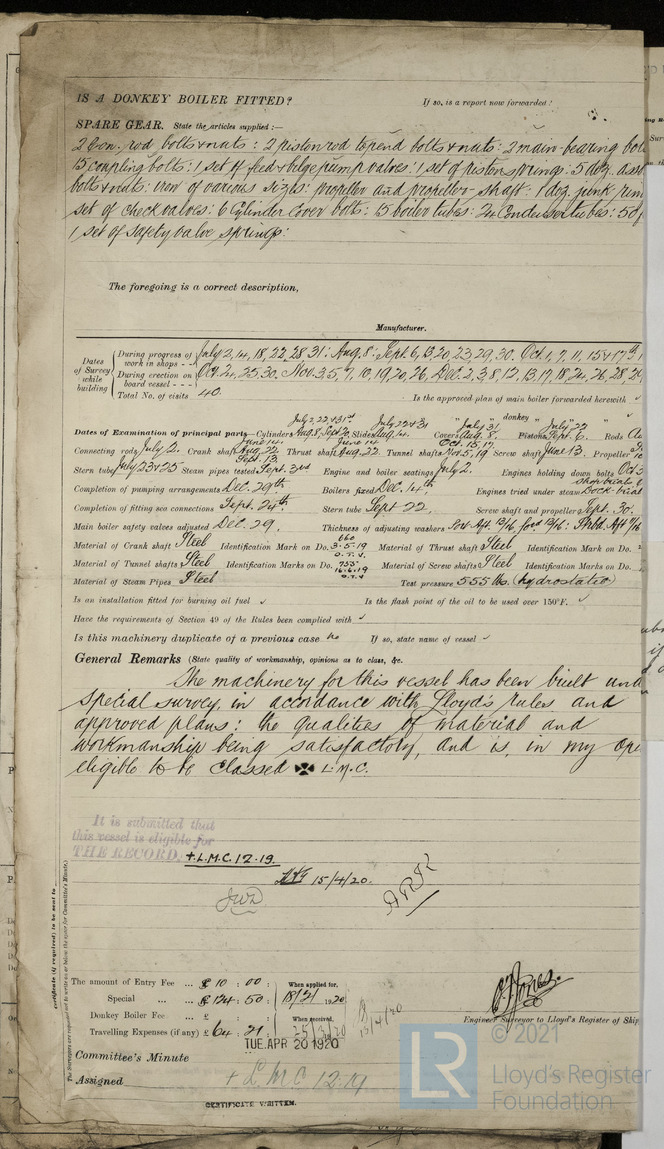 IS A DONKEY BOILER FITTED? If so, is a report now forwarded?
SPARE GEAR. State the articles supplied:—
2 Con. rod bolts & nuts: 2 piston rod top end bolts & nuts: 2 main-bearing bol
15 coupling bolts: 1 set of feed & bilge pump valves: 1 set of piston springs: 5 doz. asst
bolts & nuts: iron of various sizes: propeller and propeller-shaft: 1 doz. junk rin
set of check valves: 6 Cylinder Cover bolts: 15 boiler tubes: 24 Condenser tubes: 50
1 set of safety valve springs:
The foregoing is a correct description,
Manufacturer.
Dates of Survey while building
During progress of work in shops - - July 2, 14, 18, 22, 28, 31: Aug. 8: Sept. 6, 13, 20, 23, 29, 30. Oct. 1, 7, 11, 15 & 17th
During erection on board vessel - - - Oct. 24, 25, 30. Nov. 3, 5, 7, 10, 19, 20, 26, Dec. 2, 3, 8, 12, 13, 17, 18, 24, 26, 28, 29
Total No. of visits 40. Is the approved plan of main boiler forwarded herewith ✓
" " " donkey " "
Dates of Examination of principal parts—Cylinders July 2, 22 & 31st Aug. 8, Sept. 20, Slides July 22 & 31 Aug. 14. Covers July 31 Aug. 8. Pistons July 22 Sept. 6. Rods
Connecting rods July 2. Crank shaft June 14. Aug. 22 Sept. 13. Thrust shaft June 14 Aug. 22. Tunnel shafts Oct. 15, 17, Nov. 5, 19 Screw shaft June 13. Propeller
Stern tube July 23 & 25 Steam pipes tested Sept. 3rd Engine and boiler seatings July 2. Engines holding down bolts Oct 3
Completion of pumping arrangements Dec. 29th. Boilers fixed Dec. 14th. Engines tried under steam Shop trial Dock trial
Completion of fitting sea connections Sept. 24th. Stern tube Sept 22. Screw shaft and propeller Sept. 30.
Main boiler safety valves adjusted Dec. 29. Thickness of adjusting washers
Material of Crank shaft Steel Identification Mark on Do. 660 3-5-19 O.T.J. Material of Thrust shaft Steel Identification Mark on Do.
Material of Tunnel shafts Steel Identification Marks on Do. 755 16-6-19 O.T.J. Material of Screw shafts Steel Identification Marks on Do.
Material of Steam Pipes Steel Test pressure 555 lbs. (hydrostatic)
Is an installation fitted for burning oil fuel ✓ Is the flash point of the oil to be used over 150°F. ✓
Have the requirements of Section 49 of the Rules been complied with ✓
Is this machinery duplicate of a previous case no If so, state name of vessel ✓
General Remarks (State quality of workmanship, opinions as to class, &c.
The machinery for this vessel has been built und
special survey, in accordance with Lloyd's rules and
approved plans: the qualities of material and
workmanship being satisfactory, and is, in my opi
eligible to be classed ✠ L.M.C.
It is submitted that
this vessel is eligible for
THE RECORD. + L.M.C. 12.19.
15/4/20.
JWD
ARR
The amount of Entry Fee ... £ 10 : 00 : When applied for,
Special ... ... £ 124 : 50 : 18/2/1920
Donkey Boiler Fee ... £ When received,
Travelling Expenses (if any) £ 64 : 21 : 25/3/20
13/4/20
C. J. Jones
Engineer Surveyor to Lloyd's Register of Ship
TUE. APR 20 1920
Committee's Minute
Assigned + L.M.C. 12.19
CERTIFICATE WRITTEN.
certificate (if required) to be sent to
The Surveyors are requested not to write on or below the space for Committee's Minute.
LR
© 2021
Lloyd's Register
Foundation